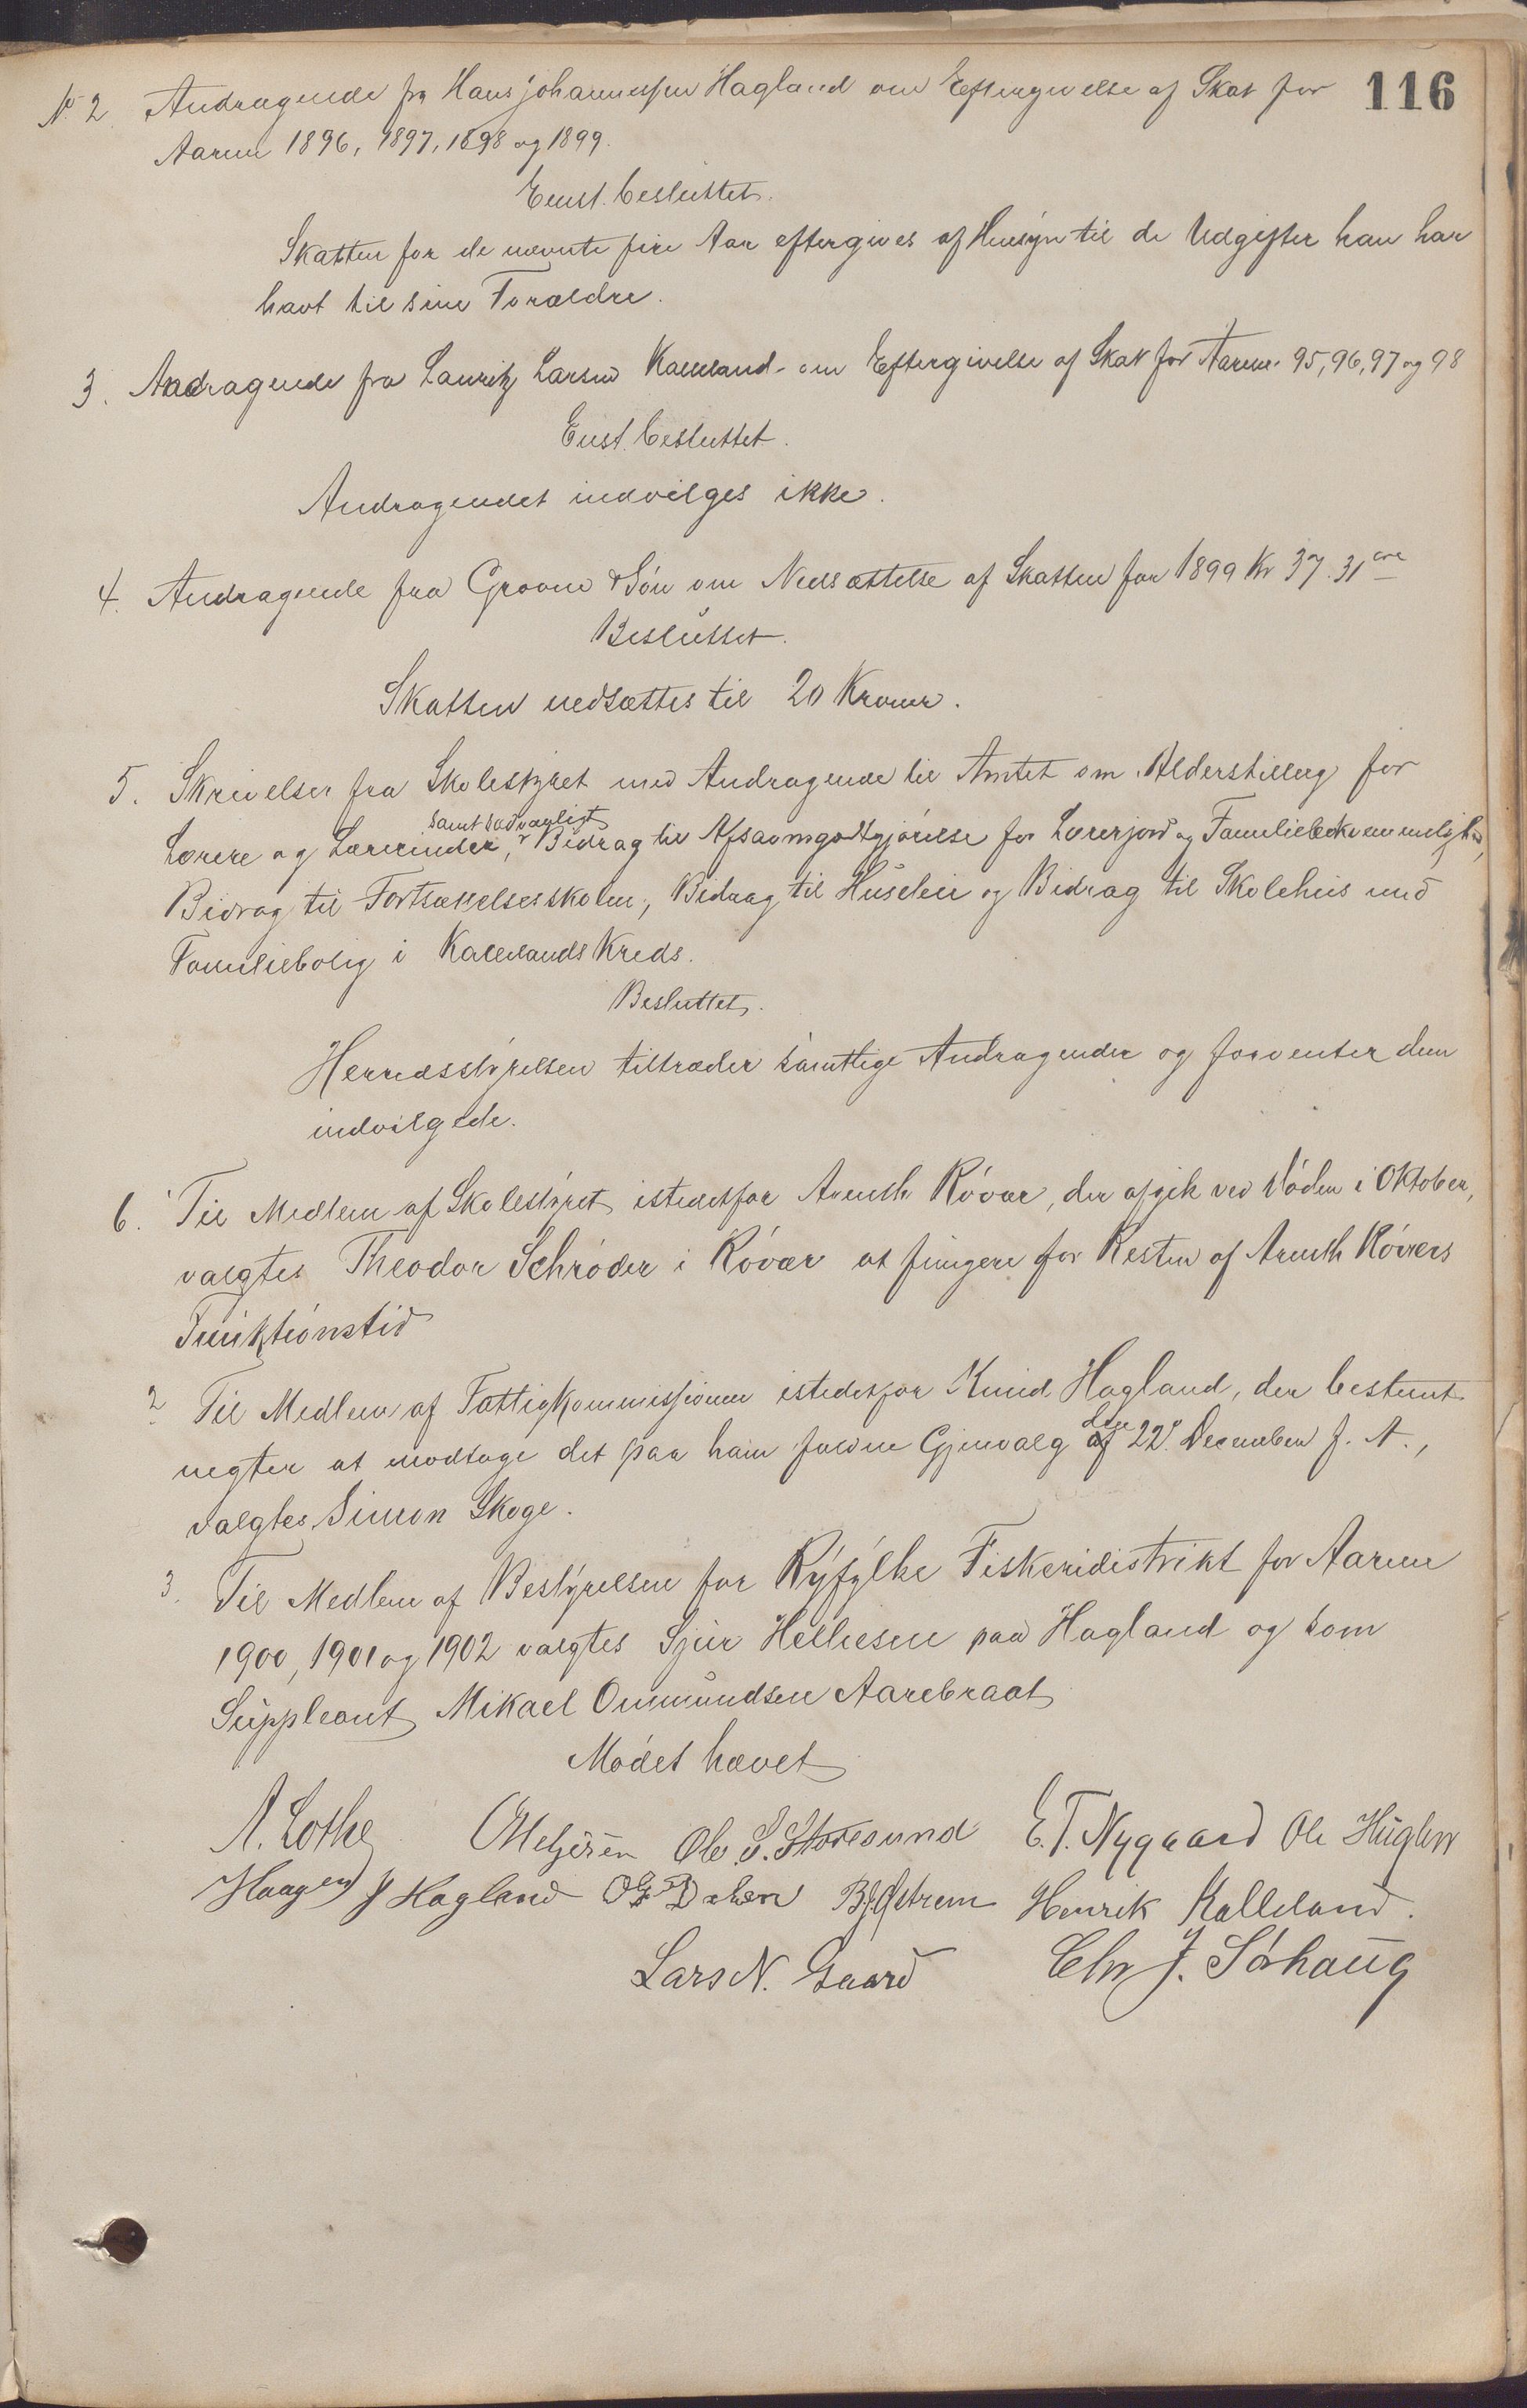 116
No 2 Andragende fra Hans Johannessen Hagland om Eftergivelse af Skat for
Aarene 1896, 1897, 1898 og 1899.
Enst. besluttet.
Skatten for de nævnte fire Aar eftergives af Hensyn til de Udgifter han har
havt til sine Forældre.
3. Andragende fra Lauritz Larsen Kalleland om Eftergivelse af Skat for Aarene 95, 96, 97 og 98
Enst. besluttet.
Andragendet indvilges ikke.
4. Andragende fra Groone & Søn om Nedsættelse af Skatten for 1899 Kr 37.31 øre
Besluttet.
Skatten nedsættes til 20 Kroner.
5. Skrivelser fra Skolestyret med Andragende til Amtet om Alderstillæg for
samt sædvanligt
Lærere og Lærerinder, Bidrag til Afsavnsgodtgjørelse for Lærerjord og Familiebekvemmelighed,
Bidrag til Fortsættelsesskolen, Bidrag til Husleie og Bidrag til Skolehus med
Familiebolig i Kallelands Kreds.
Besluttet.
Herredsstyrelsen tiltræder samtlige Andragender og forventer dem
indvilgede.
6. 1 Til Medlem af Skolestyret istedetfor Arenth Røvær, der afgik ved Døden i Oktober,
valgtes Theodor Schrøder i Røvær at fungere for Resten af Arenth Røværs
Funktionstid
2 Til Medlem af Fattigkommissionen istedetfor Knud Hagland, der bestemt
negter at modtage det paa ham faldne Gjenvalg den 22. December f. A.,
valgtes Simon Skoge.
3. Til Medlem af Bestyrelsen for Ryfylke Fiskeridistrikt for Aarene
1900, 1901 og 1902 valgtes Sjur Helliesen paa Hagland og som
Suppleant Mikael Ommundsen Aarebraat
Mødet hævet
A. Lothe Ole S. Storesund E. T. Nygaard Ole Huglen
Haagen J Hagland B. J. Østrem Henrik Kalleland.
Lars N. Gaard Chr J. Sørhaug